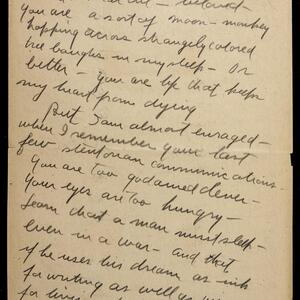 beloved -
You are a sort of moon-monkey
hopping across strangely colored
tree boughs in my sleep - Or
better - you are life that keeps
my heart from dying
But I am almost enraged -
when I remember your last
few stentorian communications -
You are too goddamed clever -
Your eyes are too hungry -
learn that a man must sleep -
even in a war - and that
if he uses his dream as ink
for writing as well as
for